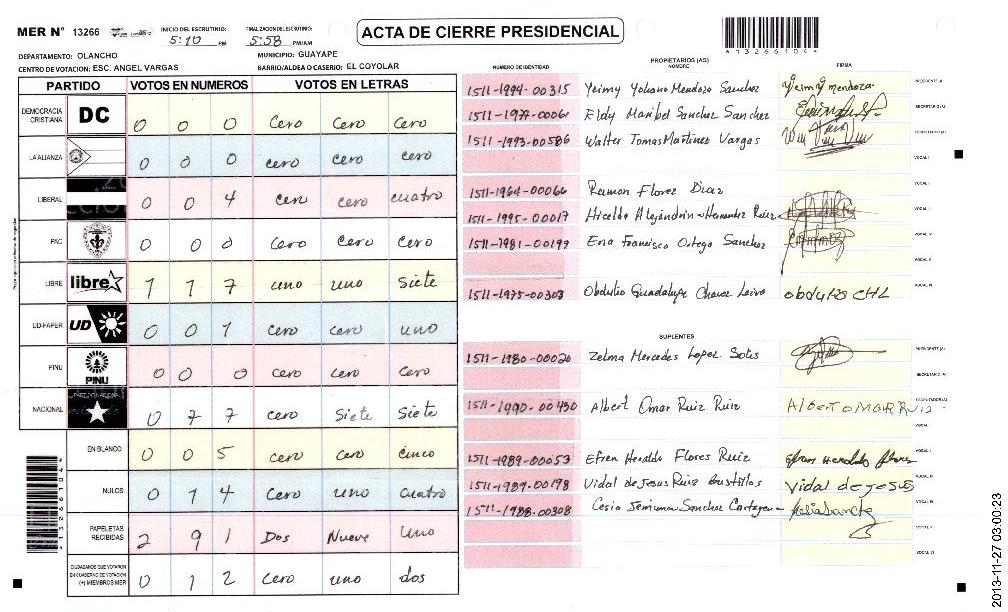 MER N° 13266 INICIO DEL ESCRUTINIO: 5:10 PM FINALIZACION DEL ESCRUTINIO: 5:58 PM/AM
ACTA DE CIERRE PRESIDENCIAL
*13266104*
DEPARTAMENTO: OLANCHO MUNICIPIO: GUAYAPE
CENTRO DE VOTACION: ESC. ANGEL VARGAS BARRIO/ALDEA O CASERIO: EL COYOLAR
PARTIDO VOTOS EN NUMEROS VOTOS EN LETRAS
DEMOCRACIA CRISTIANA DC 0 0 0 Cero Cero Cero
LA ALIANZA 0 0 0 cero cero cero
LIBERAL 0 0 4 cero cuatro
PAC 0 0 0 Cero Cero Cero
LIBRE libre 1 1 7 uno uno Siete
UD-FAPER UD 0 0 1 Cero Cero uno
PINU PINU 0 0 0 Cero Cero Cero
NACIONAL 0 7 7 cero Siete Siete
EN BLANCO 0 0 5 cero Cero cinco
NULOS 0 1 4 Cero uno Cuatro
PAPELETAS RECIBIDAS 2 9 1 Dos Nueve Uno
CIUDADANOS QUE VOTARON EN CUADERNO DE VOTACION (+) MIEMBROS MER 0 1 2 Cero uno dos
PROPIETARIOS (AS)
NUMERO DE IDENTIDAD NOMBRE FIRMA
1511-1994-00315 Yeimy Yolano Mendoza Sanchez Yeimy mendoza PRESIDENTE (A)
1511-1977-00061 Eldy Maribel Sanchez Sanchez SECRETARIO (A)
1511-1993-00586 Walter Tomas Martinez Vargas
VOCAL I
1511-1964-00066 Ramon Florez Diaz
1511-1995-00017 Hernandez Ruiz
1511-1981-00199 Francisco Ortego Sanchez
1511-1975-00303 Obdulio Guadalupe Chavez Leiva obdulio CHL
SUPLENTES
1511-1980-00020 Zelma Mercedes Lopez Solis PRESIDENTE (A)
SECRETARIO (A)
1511-1990-00450 Albert Omar Ruiz Ruiz Albert OMAR Ruiz
1511-1989-00053 Efren Heraldo Flores Ruiz Efren Heraldo flores
1511-1989-00198 Vidal de Jesus Ruiz Bustillos Vidal de Jesus
1511-1988-00308 Cesia Jemima Sanchez Cartagena
2013-11-27 03:00:23